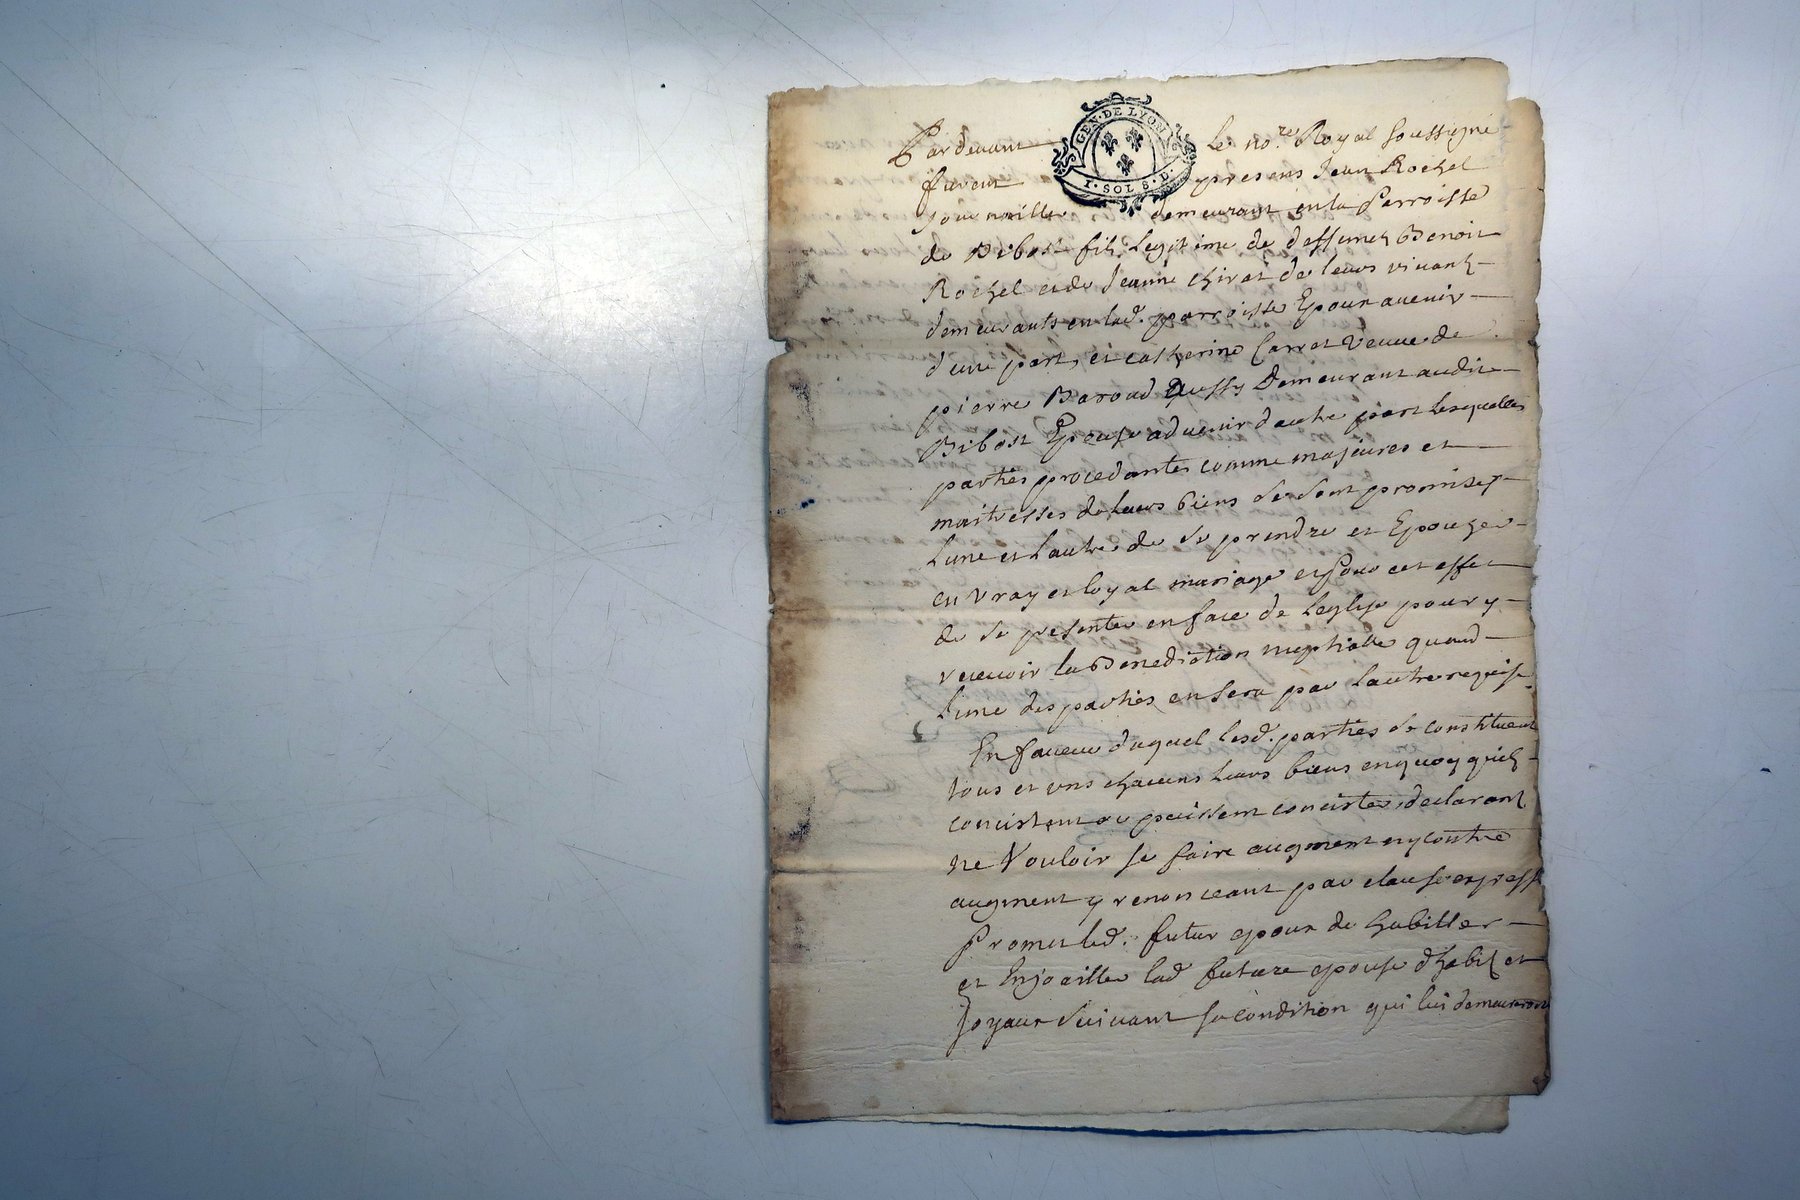 GEN·DE LYON
I·SOL 8·D·
Pardevant le no.re Royal soussigné
furent presens Jean Rochel
journaillier demeurant en la Perroisse
de Bibost fils legitime de deffunct Benoit
Rochel et de Jeanne Chirat de leurs vivants
demeurants en lad. parroisse Epoux avenir
d'une part, et Catherine Carret Veuve de
pierre Baroud aussy Demeurant audit
Bibost Epouse advenir d'autre part lesquelles
parties procedantes comme majeures et
maitresses de leurs biens se sont promises
L'une et L'autre de se prendre et Epouzer
en vray et loyal mariage et pour cet effet
de se presenter en face de Leglise pour y
recevoir la Benediction nuptialle quand
L'une des parties en sera par L'autre requise
En faveur duquel lesd. parties se constituent
tous et uns chacuns leurs biens en quoy quils
concistent ou puissent concister, declarant
ne Vouloir se faire augment ny contre
augment y renonceant par clause expresse
Promet led. futur epoux de habiller
et Enjoailler lad future epouse d'habits et
Joyaux suivant sa condition qui lui demeureront